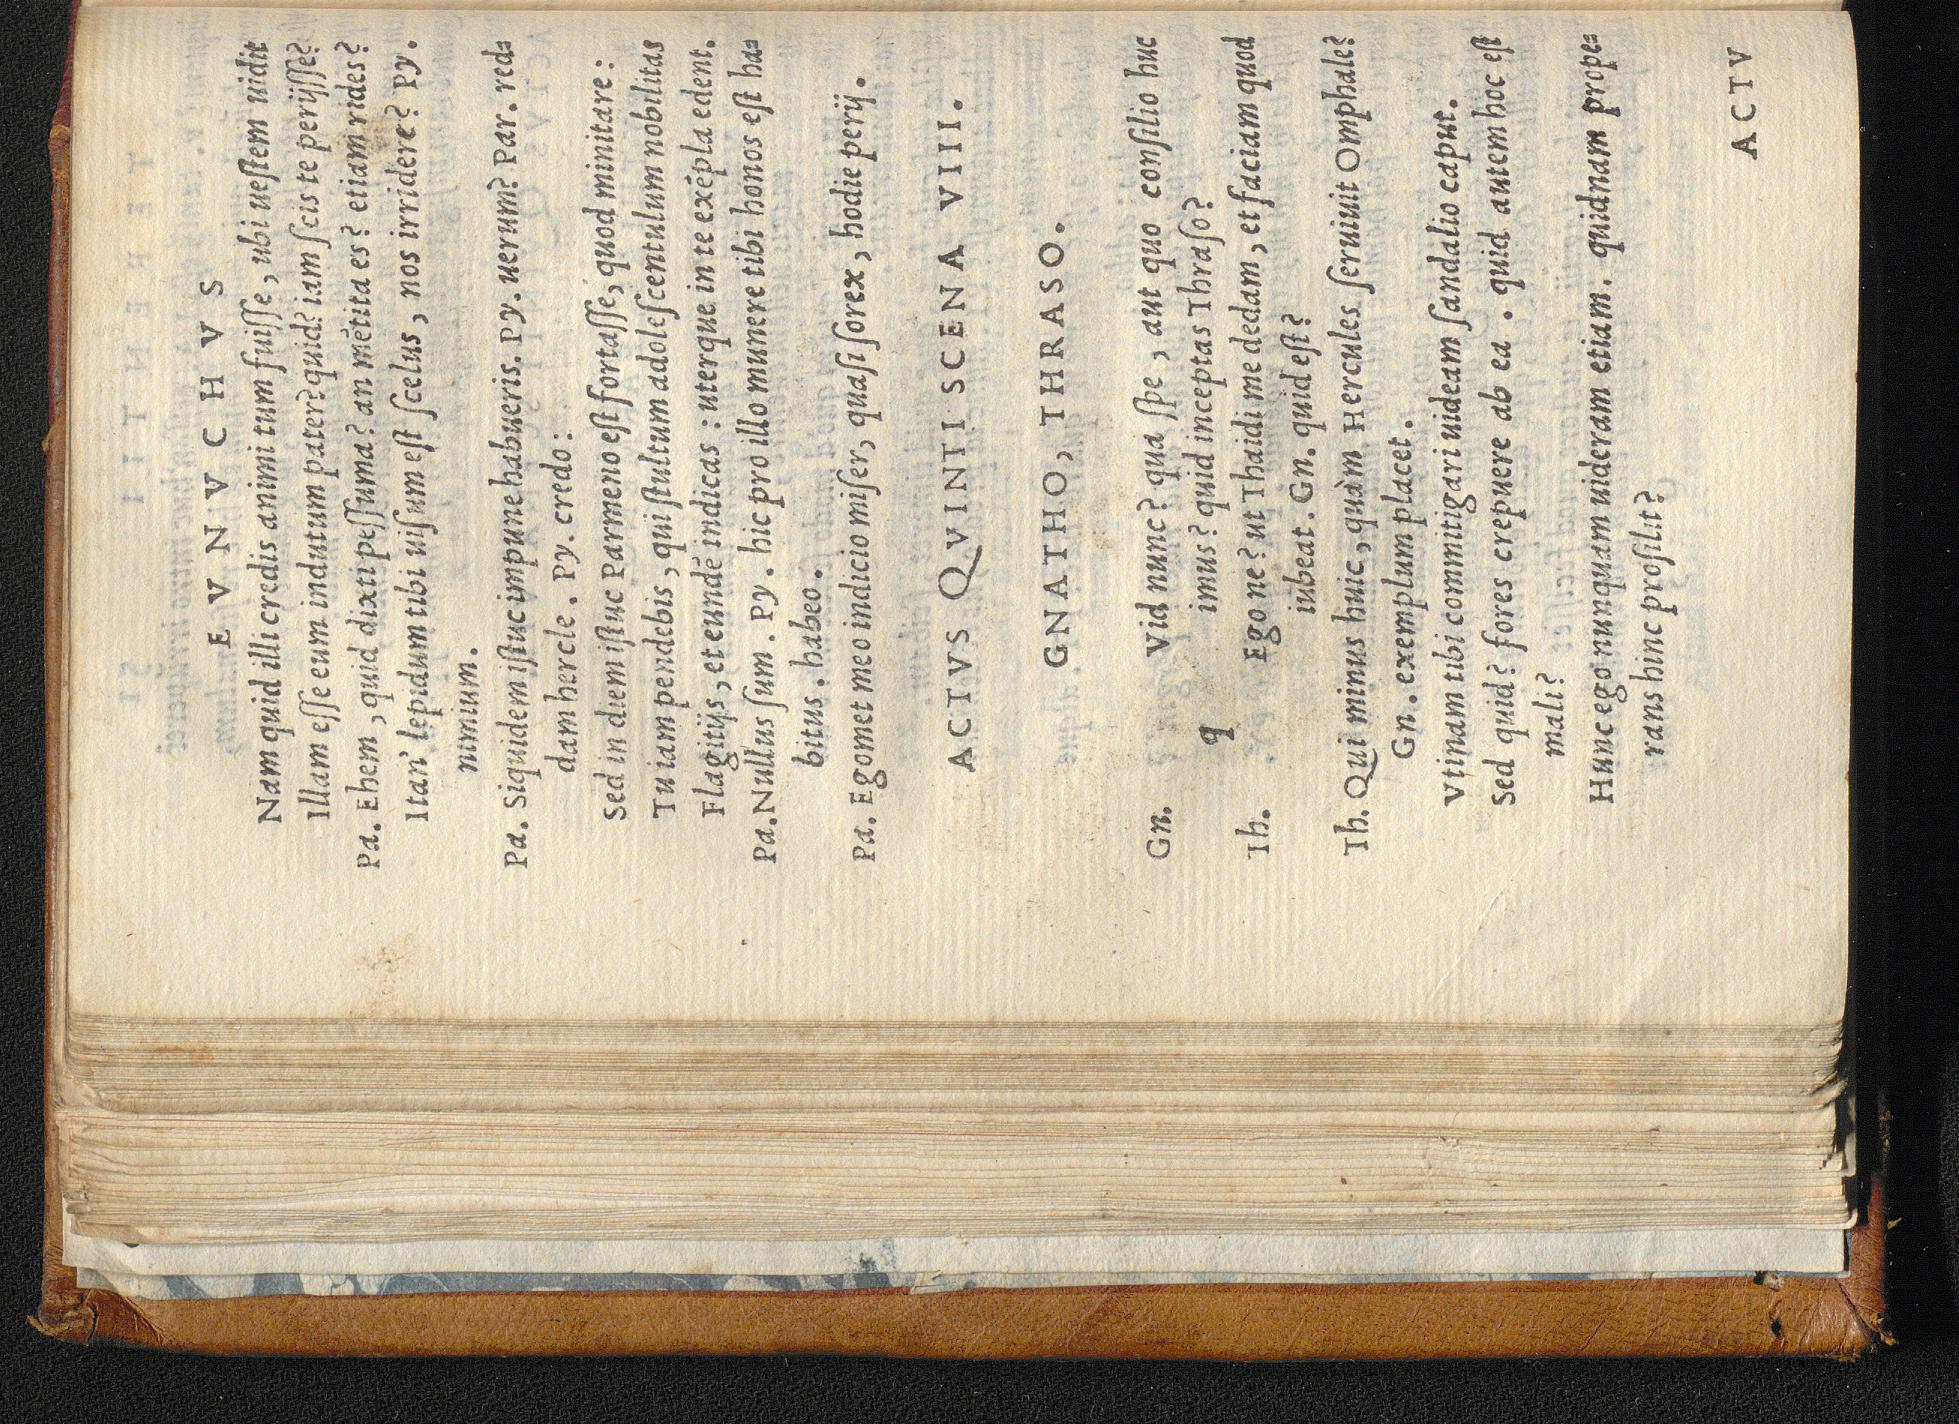 E V N V C H V S
Nam quid illi credis animi tum fuiſſe, ubi ueſtem uidit
Illam eſſe eum indutum pater? quid? iam ſcis te perijſſe?
Pa. Ehem, quid dixti peſſuma? an mẽtita es? etiam rides?
Itan' lepidum tibi uiſum eſt ſcelus, nos irridere? Py.
nimium.
Pa. Siquidem iſtuc impune habueris. Py. uerum? Par. red=
dam hercle. Py. credo:
Sed in diem iſtuc Parmeno eſt fortaſſe, quod minitare:
Tu iam pendebis, qui ſtultum adoleſcentulum nobilitas
Flagitijs, et eundẽ indicas: uterque in te exẽpla edent.
Pa. Nullus ſum. Py. hic pro illo munere tibi honos eſt ha=
bitus. habeo.
Pa. Egomet meo indicio miſer, quaſi ſorex, hodie perij.
ACTVS QVINTI SCENA VIII.
GNATHO, THRASO.
Gn. Vid nunc? qua ſpe, aut quo conſilio huc
q imus? quid inceptas Thraſo?
Th. Ego ne? ut Thaidi me dedam, et faciam quod
iubeat. Gn. quid eſt?
Th. Qui minus huic, quàm Hercules ſeruiuit Omphale?
Gn. exemplum placet.
Vtinam tibi commitigari uideam ſandalio caput.
Sed quid? fores crepuere ab ea. quid autem hoc eſt
mali?
Hunc ego nunquam uideram etiam. quidnam prope=
rans hinc proſilit?
ACTV